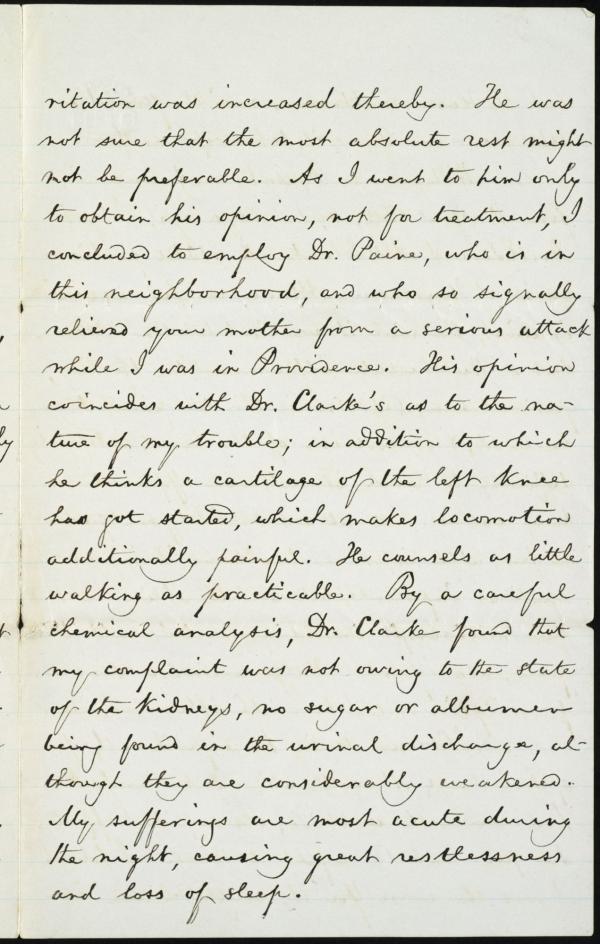 ritation was increased thereby. He was
not sure that the most absolute rest might
not be preferable. As I went to him only
to obtain his opinion, not for treatment, I
concluded to employ Dr. Paine, who is in
this neighborhood, and who so signally
relieved your mother from a serious attack
while I was in Providence. His opinion
coincides with Dr. Clarke's as to the na-
ture of my trouble; in addition to which
he thinks a cartilage of the left knee
has got started, which makes locomotion
additionally painful. He counsels as little
walking as practicable. By a careful
chemical analysis, Dr. Clarke found that
my complaint was not owing to the state
of the kidneys, no sugar or albumen
being found in the urinal discharge, al-
though they are considerably weakened.
My sufferings are most acute during
the night, causing great restlessness
and loss of sleep.